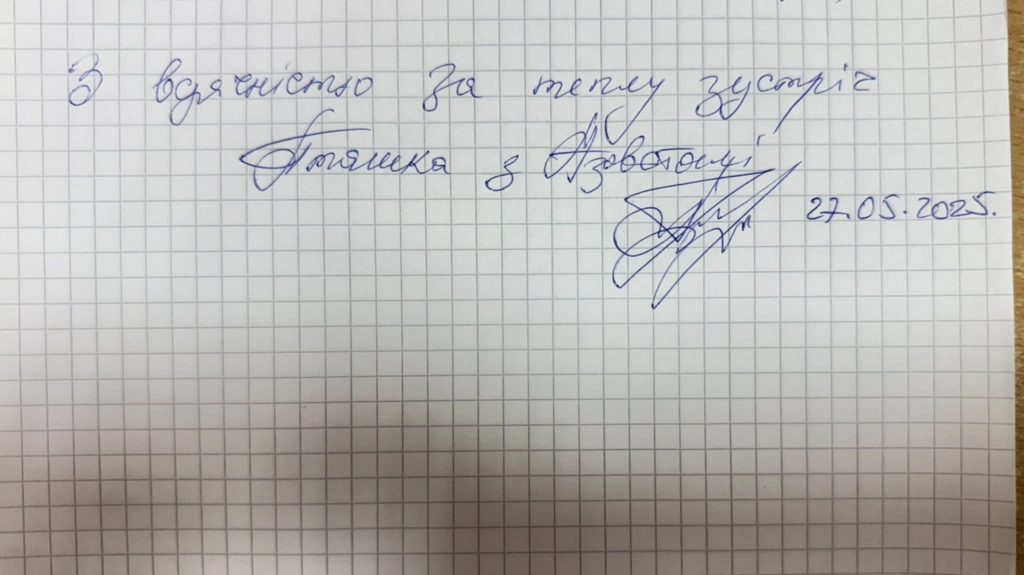 З вдячністю за теплу зустріч
Пташка з Азовсталі
27.05.2025.